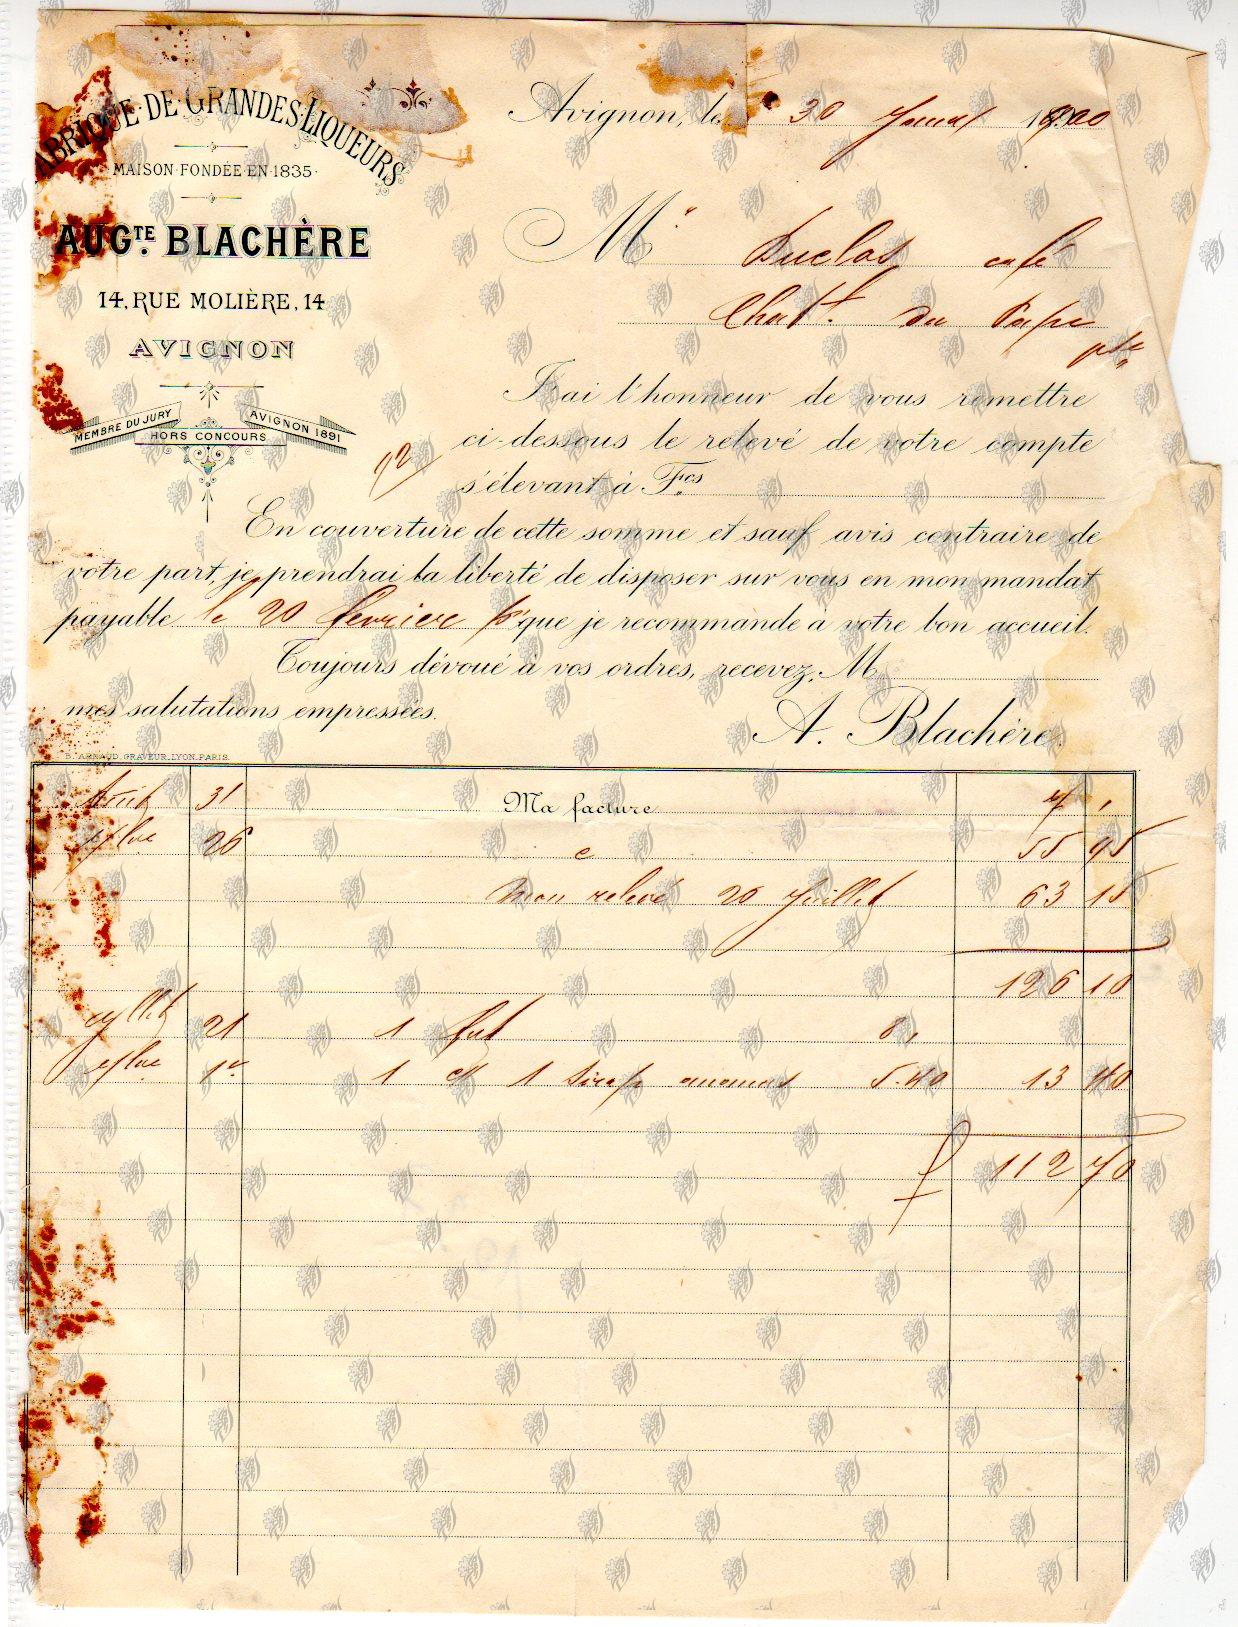 FABRIQUE·DE·GRANDES·LIQUEURS
MAISON·FONDÉE·EN·1835·
AUGTE. BLACHÈRE
14, RUE MOLIÈRE, 14
AVIGNON
MEMBRE DU JURY
HORS CONCOURS
AVIGNON 1891
Avignon, le 30 1900
M Duclos café
Chatf. du Pape
J'ai l'honneur de vous remettre
ci-dessous le relevé de votre compte
s'élevant à Fcs
En couverture de cette somme et sauf avis contraire de
votre part, je prendrai la liberté de disposer sur vous en mon mandat
payable le 20 fevrier que je recommande à votre bon accueil.
Toujours dévoué à vos ordres, recevez, M
mes salutations empressées.
A. Blachère.
B. ARNAUD, GRAVEUR, LYON, PARIS.
31 Ma facture 7 ,
26 55 95
Mon relevé 20 Juillet 63 15
126 10
21 1 fut 8,
1er 1 1 Sirop ananas 5.40 13 40
112 70